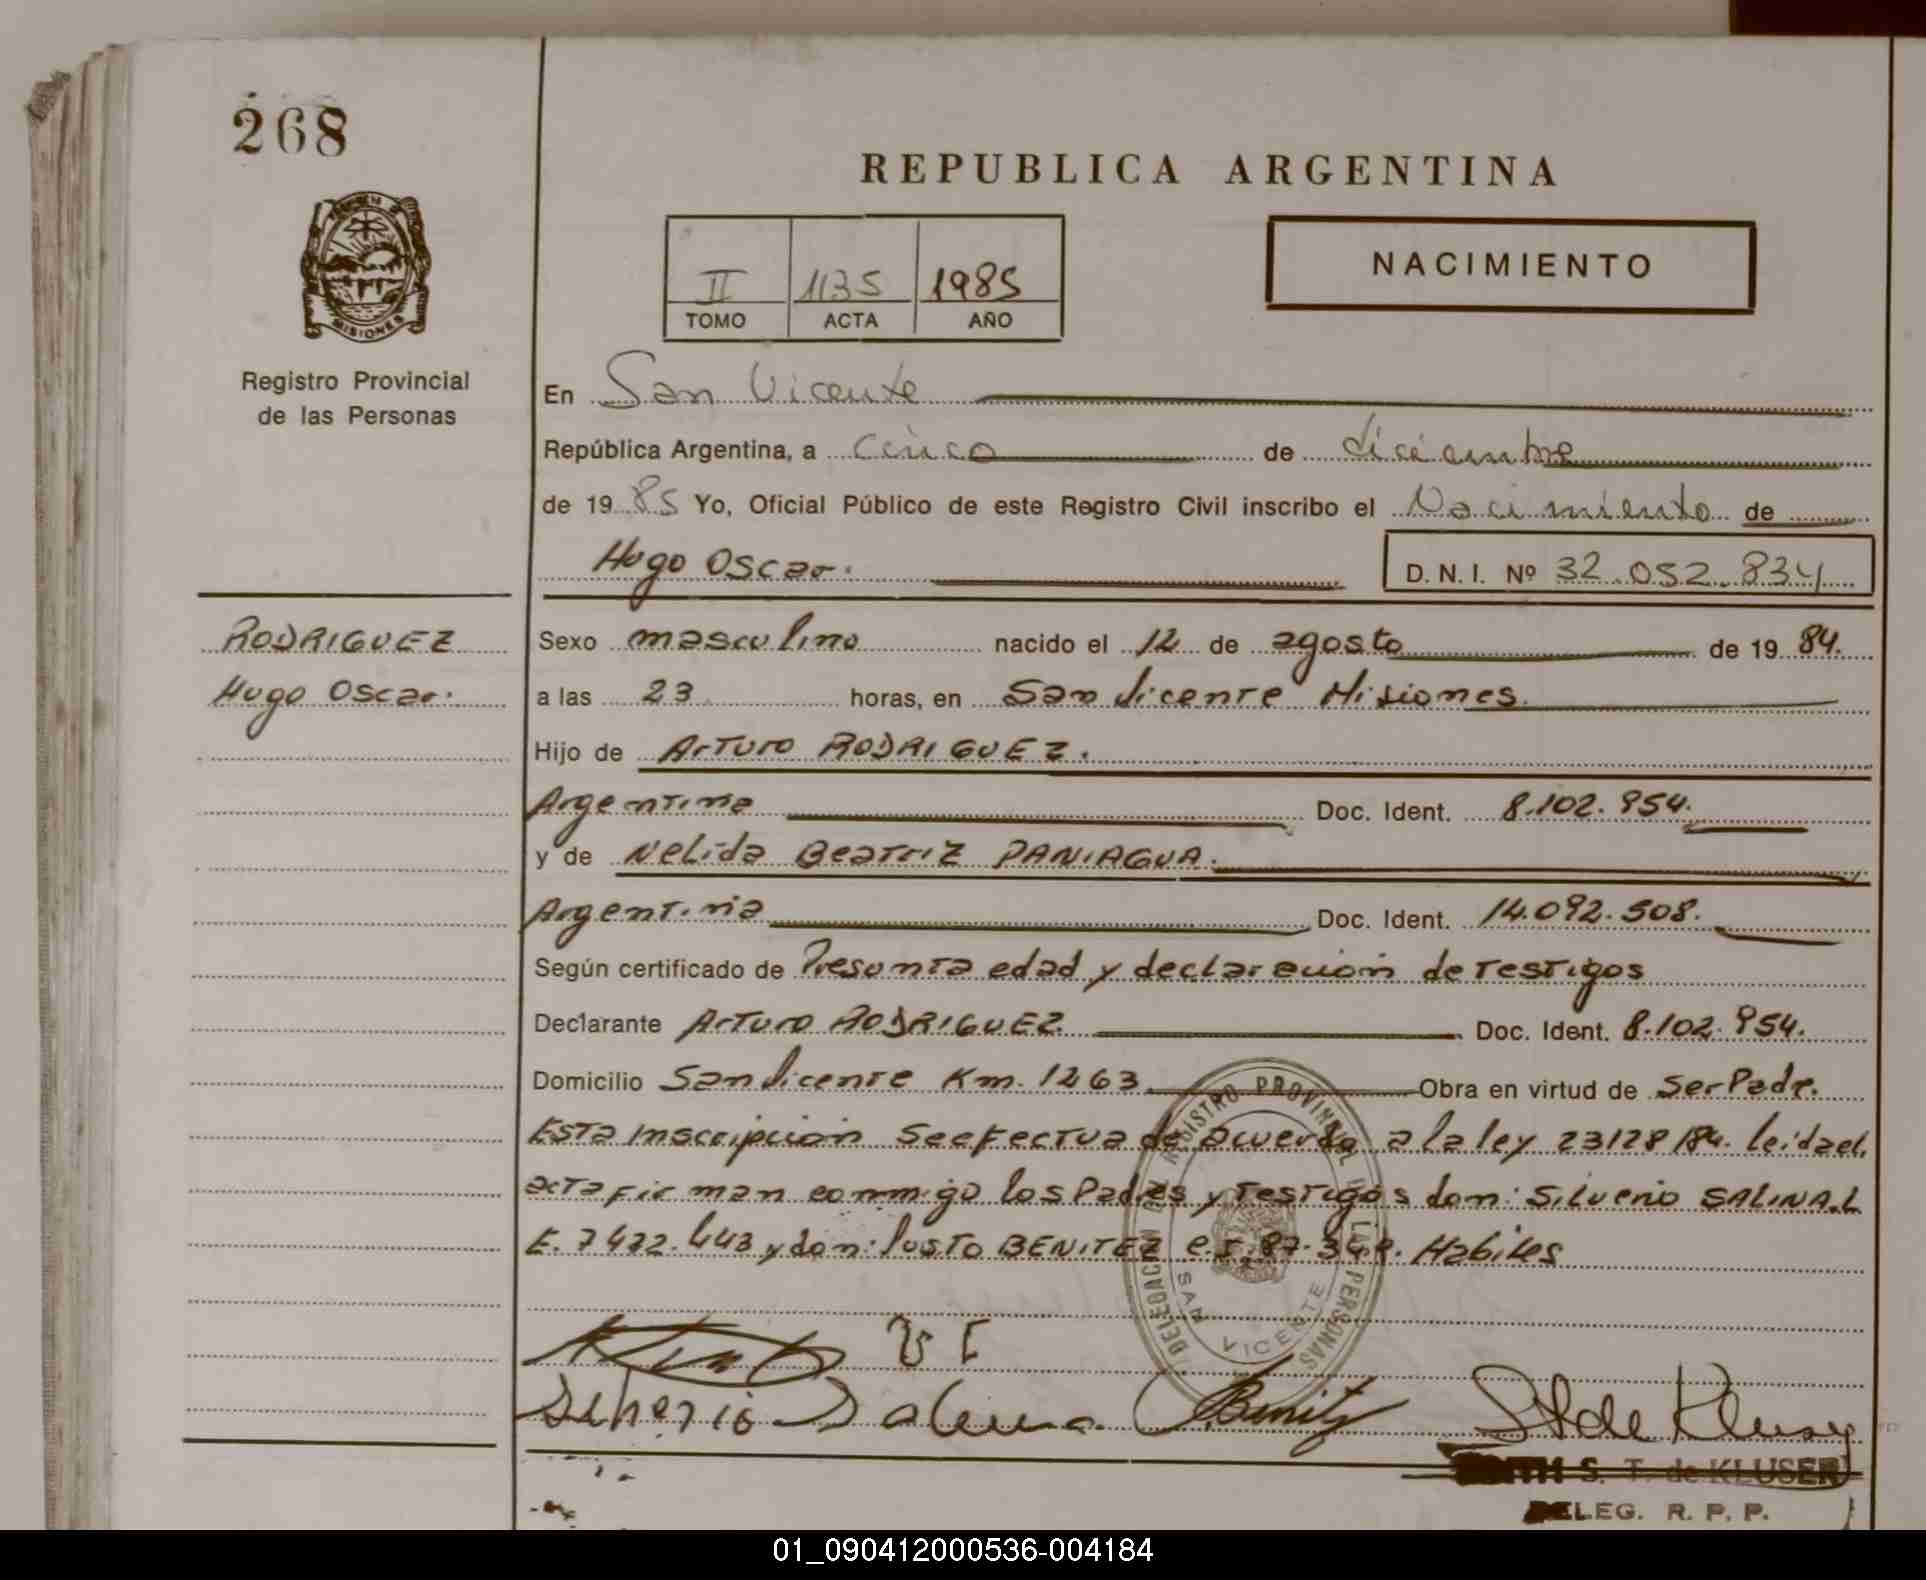 268
REPUBLICA ARGENTINA
NACIMIENTO
II 1135 1985
TOMO ACTA AÑO
MISIONES
Registro Provincial
de las Personas
En San Vicente
República Argentina, a cinco de diciembre
de 1985 Yo, Oficial Público de este Registro Civil inscribo el Nacimiento de
Hugo Oscar. D. N. I. Nº 32.052.834
RODRIGUEZ
Hugo Oscar.
Sexo masculino nacido el 12 de agosto de 1984.
a las 23 horas, en San Vicente Misiones.
Hijo de Arturo RODRIGUEZ.
Argentina Doc. Ident. 8.102.954.
y de Nelida Beatriz PANIAGUA.
Argentina Doc. Ident. 14.092.508.
Según certificado de Presunta edad y declaracion de testigos
Declarante Arturo RODRIGUEZ. Doc. Ident. 8.102.954.
Domicilio San Vicente Km. 1263. Obra en virtud de Ser Padre.
Esta inscripcion se efectua de acuerdo a la ley 23128/84. leida el
acta firman conmigo los Padres y testigos don: Silverio SALINA. L
E. 7472.443 y don: Justo BENITEZ Habiles
DELEGACION DEL REGISTRO PROVINCIAL DE LAS PERSONAS
SAN VICENTE
Silverio Salina. Benitz St de Kluser
S. T. de KLUSER
DELEG. R. P. P.
01_090412000536-004184